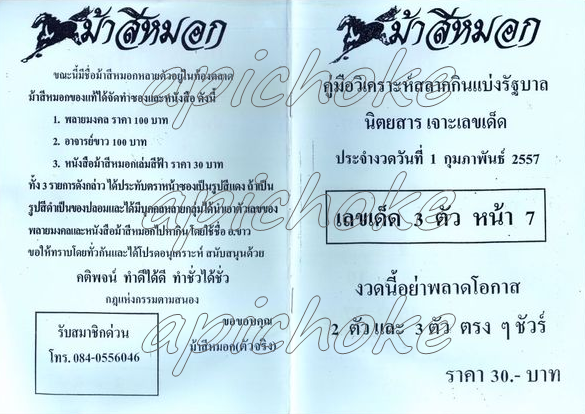 ม้าสีหมอก
ขณะนี้มีชื่อม้าสีหมอกหลายตัวอยู่ในท้องตลาด
ม้าสีหมอกของแท้ได้จัดทำซองและหนังสือ ดังนี้
1. พลายมงคล ราคา 100 บาท
2. อาจารย์ขาว 100 บาท
3. หนังสือม้าสีหมอกเล่มสีฟ้า ราคา 30 บาท
ทั้ง 3 รายการดังกล่าว ได้ประทับตราหน้าซองเป็นรูปสีแดง ถ้าเป็น
รูปสีดำเป็นของปลอมและได้มีบุคคลหลายกลุ่มได้นำเอาตัวเลขของ
พลายมงคลและหนังสือม้าสีหมอกไปหากิน โดยใช้ชื่อ อ.ขาว
ขอให้ทราบโดยทั่วกันและได้โปรดอนุเคราะห์ สนับสนุนด้วย
คติพจน์ ทำดีได้ดี ทำชั่วได้ชั่ว
กฎแห่งกรรมตามสนอง
ขอขอบคุณ
ม้าสีหมอก(ตัวจริง)
รับสมาชิกด่วน
โทร. 084-0556046
ม้าสีหมอก
คู่มือวิเคราะห์สลากกินแบ่งรัฐบาล
นิตยสาร เจาะเลขเด็ด
ประจำงวดวันที่ 1 กุมภาพันธ์ 2557
เลขเด็ด 3 ตัว หน้า 7
งวดนี้อย่าพลาดโอกาส
2 ตัว และ 3 ตัว ตรง ๆ ชัวร์
ราคา 30.- บาท
apichoke
apichoke
apichoke
apichoke
apichoke
apichoke
apichoke
apichoke